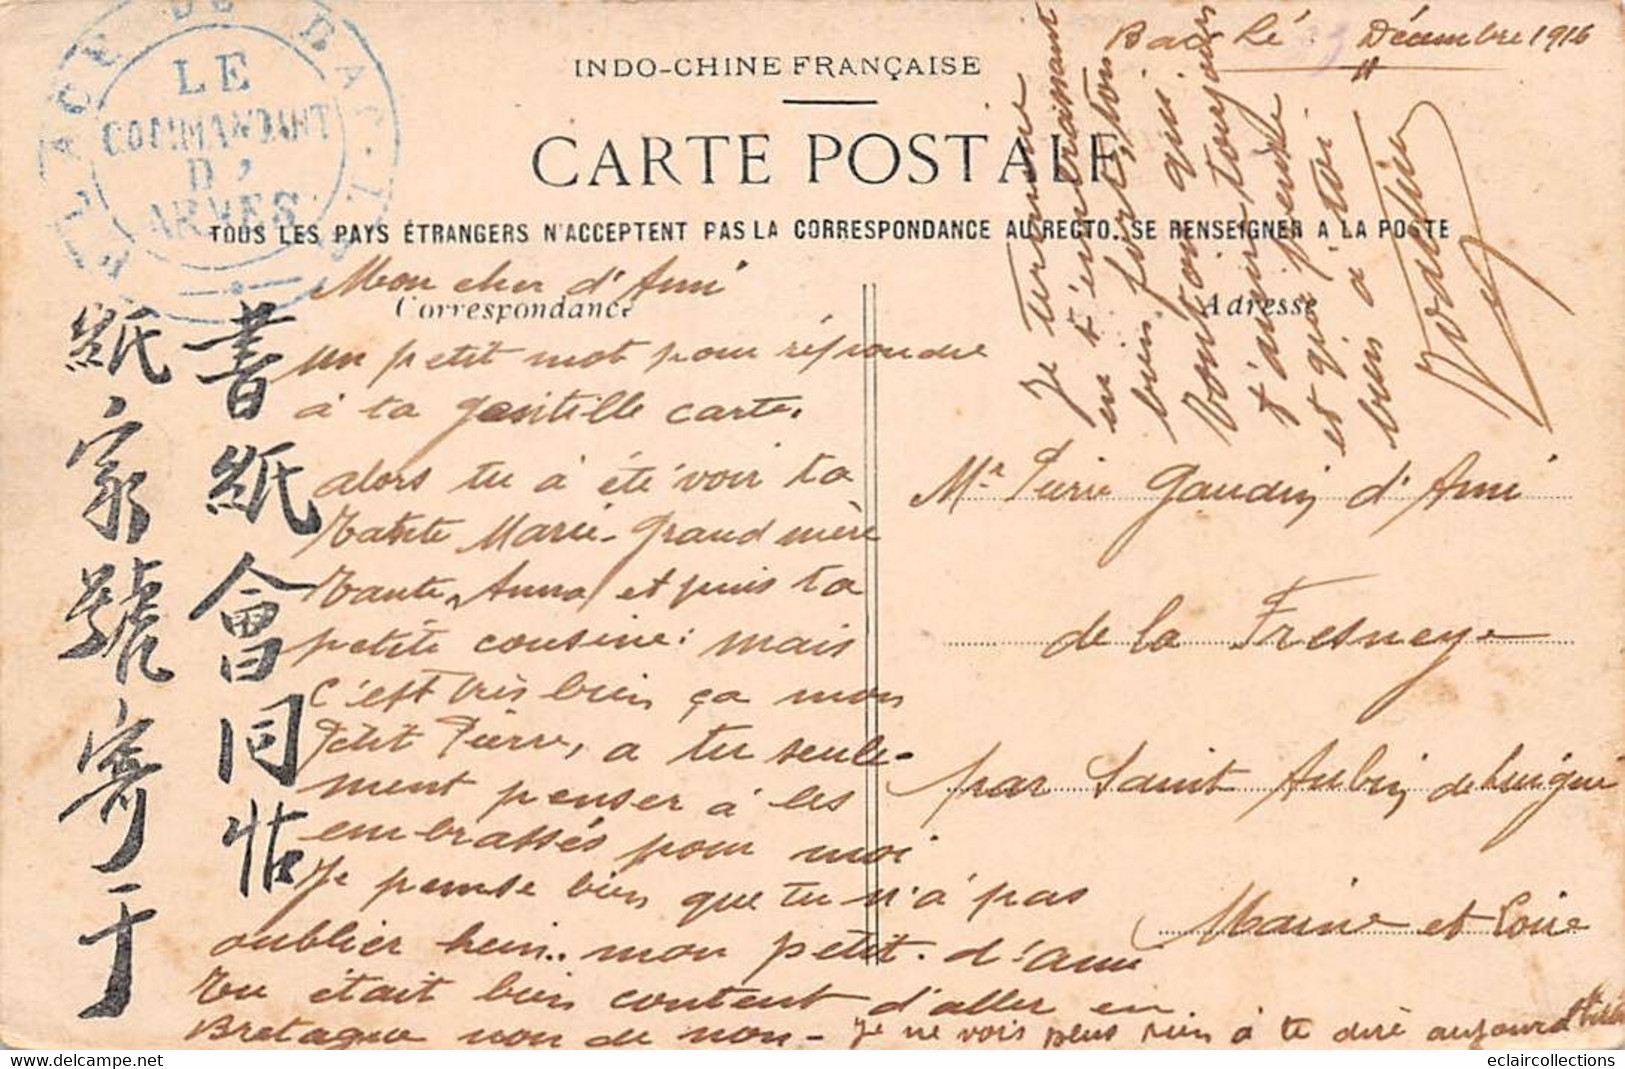 LE
COMMANDANT
D'
ARMES
INDO-CHINE FRANÇAISE
CARTE POSTALE
TOUS LES PAYS ÉTRANGERS N'ACCEPTENT PAS LA CORRESPONDANCE AU RECTO. SE RENSEIGNER A LA POSTE
Correspondance
Adresse
Décembre 1916
Mon cher d'Ami
un petit mot pour répondre
à ta gentille carte.
alors tu à été voir ta
Tante Marie. Grand mère
Tante Anna et puis ta
petite cousine: mais
c'est très bien ça mon
Petit Pierre, a tu seule-
ment penser à les
embrassés pour moi
Je pense bien que tu n'a pas
oublier hein.. mon petit. d'ami
Tu était bien content d'aller en
Bretagne non de non - Je ne vois plus rien à te dire aujourd'
Je termine
en t'embrassant
bien fort, ton
Tonton qui
t'aime toujours
et qui pense
bien à toi
Mr Pierre Gaudin d'Ami
de la Fresnaye
par Saint Aubin de Luigné
Maine et Loire
書紙會同帖
紙家號寄于
eclaircollections